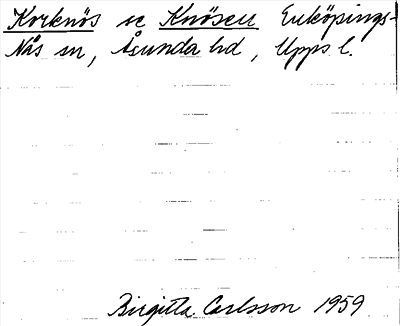 Korknös se Knösen Enköpings-
Näs sn, Åsunda hd, Upps. l.
Birgitta Carlsson 1959